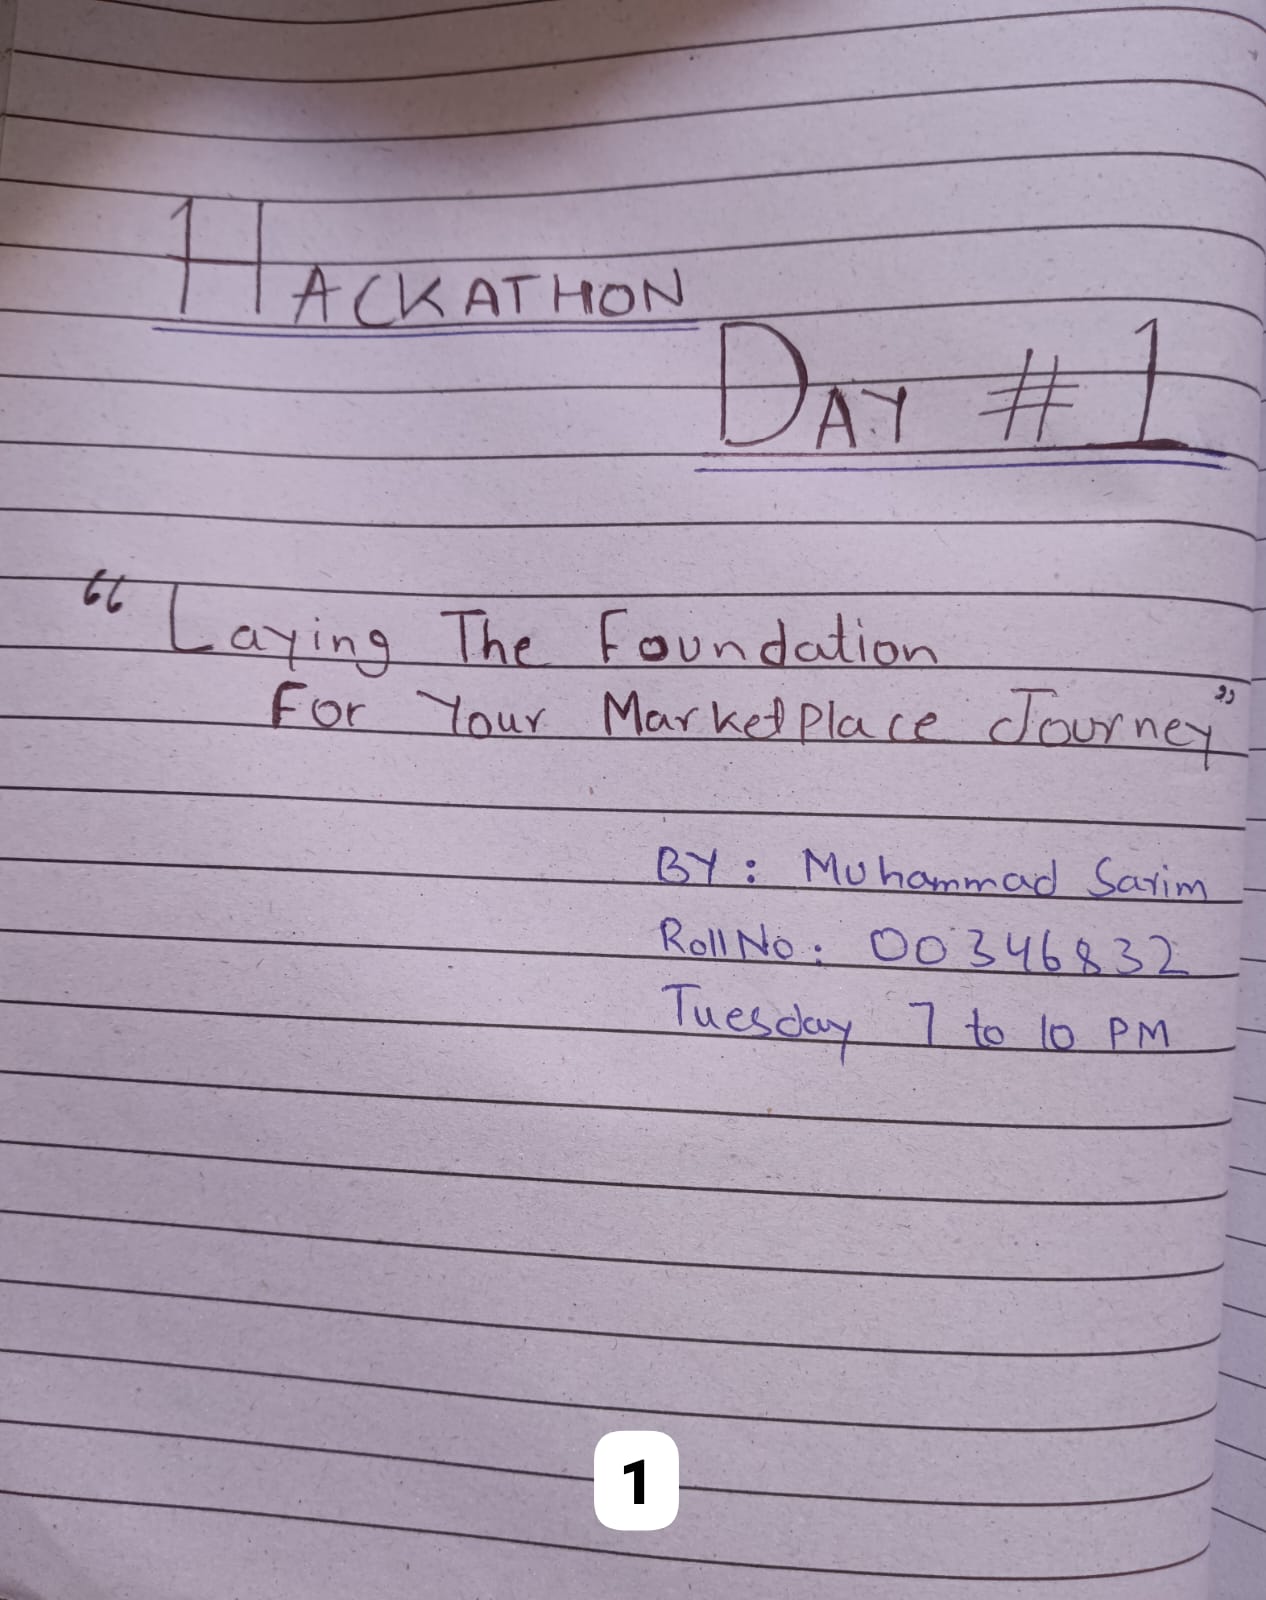 HACKATHON
DAY # 1
“ Laying The Foundation
For Your Marketplace Journey”
BY : Muhammad Sarim
Roll No : 00346832
Tuesday 7 to 10 PM
1